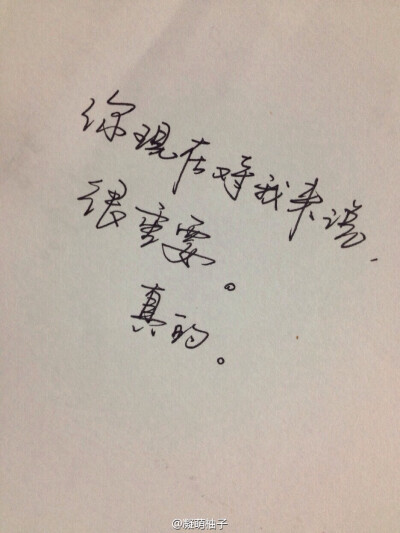 你现在对我来说,
很重要。
真的。
@凝萌柚子